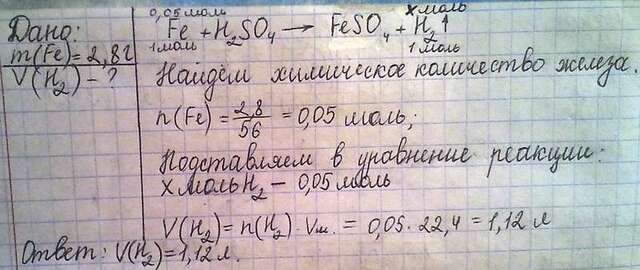 Дано:
m(Fe) = 2,8 г
V(H₂) - ?
0,05 моль x моль
Fe + H₂SO₄ → FeSO₄ + H₂↑
1 моль 1 моль
Найдём химическое количество железа.
n(Fe) = 2,8/56 = 0,05 моль;
Подставляем в уравнение реакции:
x моль H₂ – 0,05 моль
V(H₂) = n(H₂) · Vм. = 0,05 · 22,4 = 1,12 л
Ответ: V(H₂) = 1,12 л.